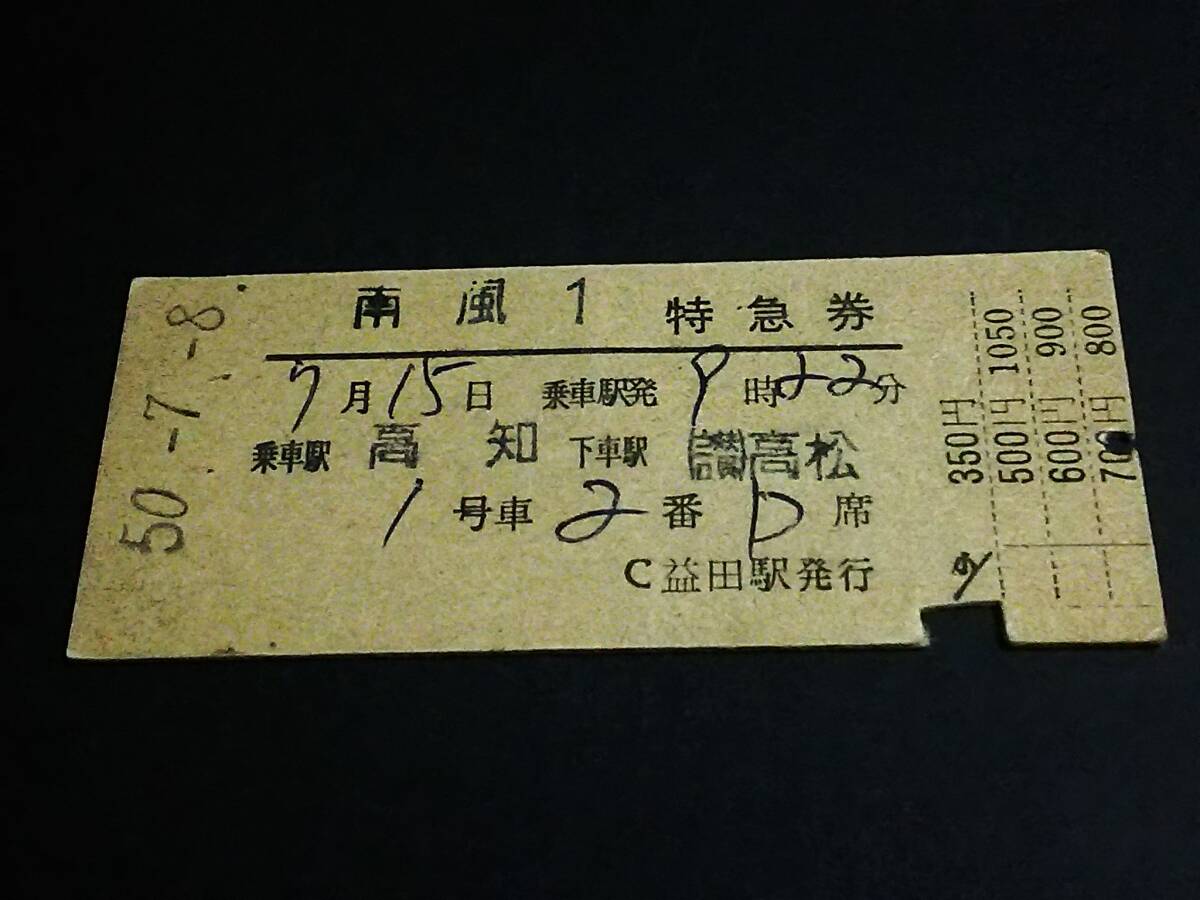 50.-7.-8.
南風1 特急券
7月15日 乗車駅発 9時22分
乗車駅 高知 下車駅 讃高松
1号車 2番 D席
C益田駅発行
350円
500円 1050
600円 900
700円 800